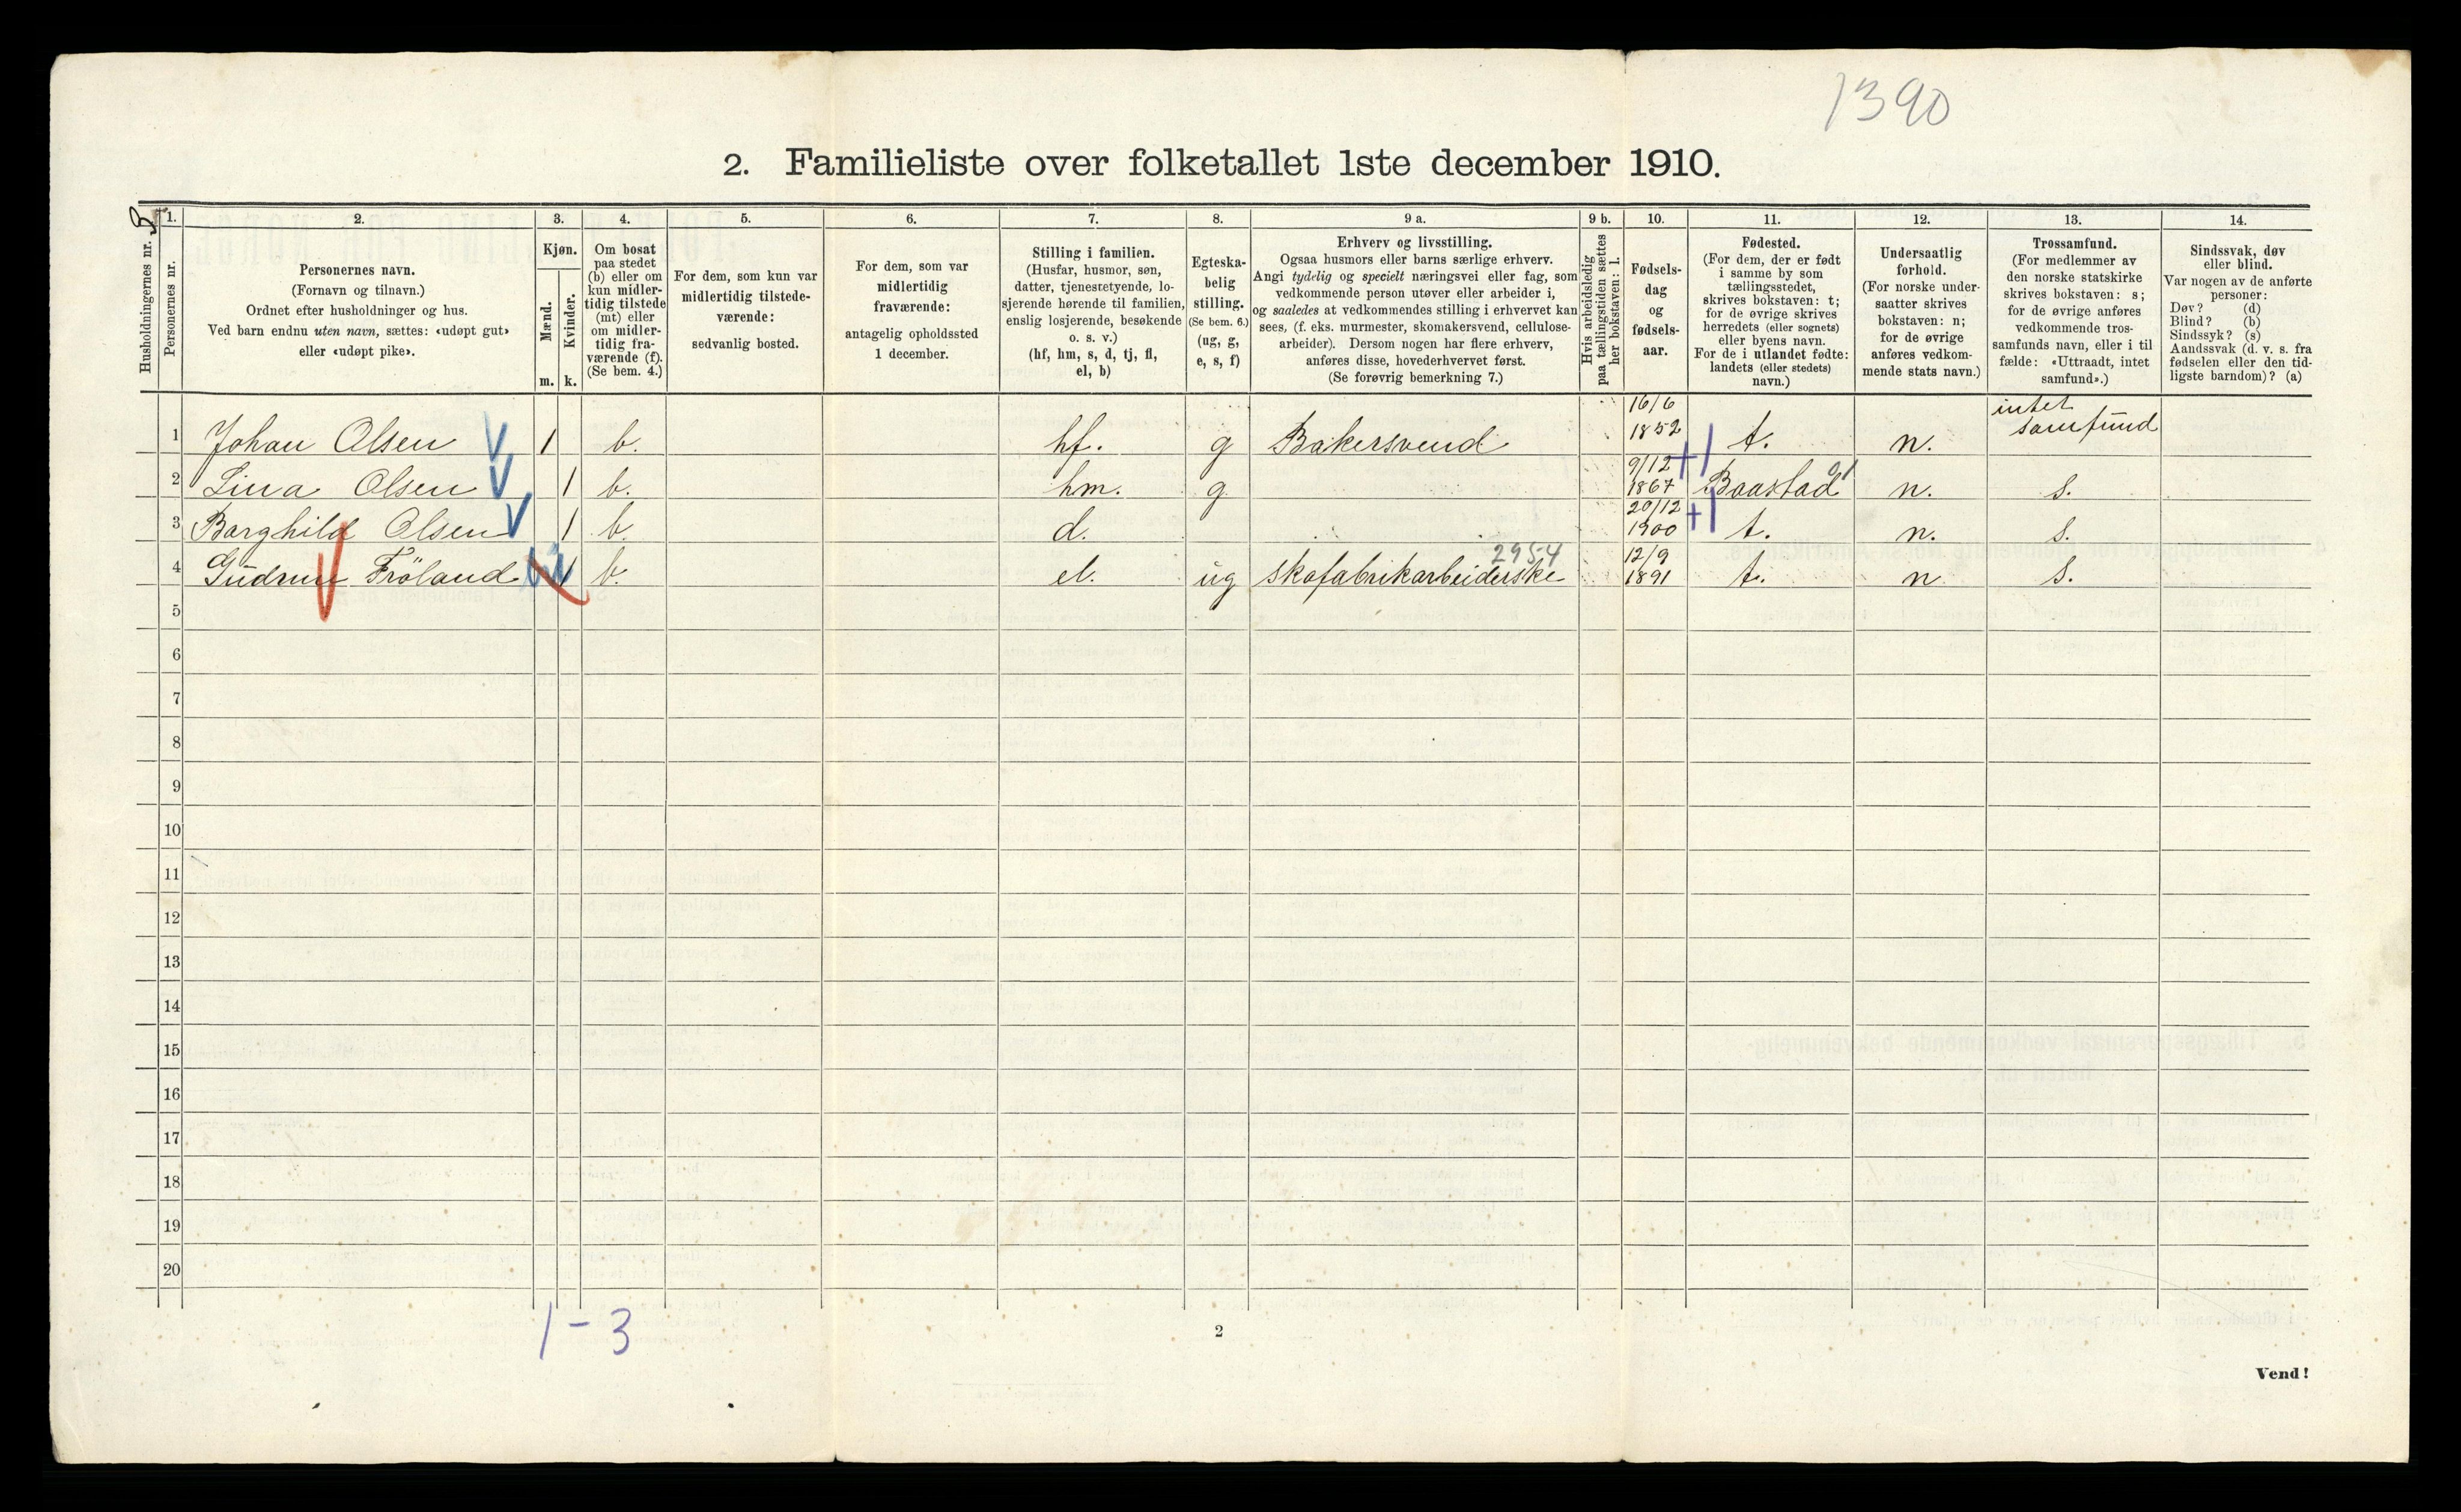 1390
2. Familieliste over folketallet 1ste december 1910.
Husholdningernes nr.
1. Personernes nr.
2. Personernes navn.
(Fornavn og tilnavn.)
Ordnet efter husholdninger og hus.
Ved barn endnu uten navn, sættes: «udøpt gut»
eller «udøpt pike».
3. Kjøn.
Mænd. m.
Kvinder. k.
4. Om bosat
paa stedet
(b) eller om
kun midler-
tidig tilstede
(mt) eller
om midler-
tidig fra-
værende (f).
(Se bem. 4.)
5. For dem, som kun var
midlertidig tilstede-
værende:
sedvanlig bosted.
6. For dem, som var
midlertidig
fraværende:
antagelig opholdssted
1 december.
7. Stilling i familien.
(Husfar, husmor, søn,
datter, tjenestetyende, lo-
sjerende hørende til familien,
enslig losjerende, besøkende
o. s. v.)
(hf, hm, s, d, tj, fl,
el, b)
8. Egteska-
belig
stilling.
(Se bem. 6.)
(ug, g,
e, s, f)
9 a. Erhverv og livsstilling.
Ogsaa husmors eller barns særlige erhverv.
Angi tydelig og specielt næringsvei eller fag, som
vedkommende person utøver eller arbeider i,
og saaledes at vedkommendes stilling i erhvervet kan
sees, (f. eks. murmester, skomakersvend, cellulose-
arbeider). Dersom nogen har flere erhverv,
anføres disse, hovederhvervet først.
(Se forøvrig bemerkning 7.)
9 b. Hvis arbeidsledig
paa tællingstiden sættes
her bokstaven: l.
10. Fødsels-
dag
og
fødsels-
aar.
11. Fødested.
(For dem, der er født
i samme by som
tællingsstedet,
skrives bokstaven: t;
for de øvrige skrives
herredets (eller sognets)
eller byens navn.
For de i utlandet fødte:
landets (eller stedets)
navn.)
12. Undersaatlig
forhold.
(For norske under-
saatter skrives
bokstaven: n;
for de øvrige
anføres vedkom-
mende stats navn.)
13. Trossamfund.
(For medlemmer av
den norske statskirke
skrives bokstaven: s;
for de øvrige anføres
vedkommende tros-
samfunds navn, eller i til
fælde: «Uttraadt, intet
samfund».)
14. Sindssvak, døv
eller blind.
Var nogen av de anførte
personer:
Døv? (d)
Blind? (b)
Sindssyk? (s)
Aandssvak (d. v. s. fra
fødselen eller den tid-
ligste barndom)? (a)
1 Johan Olsen 1 b. hf. g Bakersvend 16/6 1852 t. n. intet samfund
2 Lina Olsen 1 b. hm. g 9/12 1867 Baastad n. s.
3 Borghild Olsen 1 b. d. 20/12 1900 t. n. s.
4 Gudrun Fröland 1 b. el. ug skofabrikarbeiderske 2954 12/9 1891 t. n s.
5
6
7
8
9
10
11
12
13
14
15
16
17
18
19
20
1 - 3
2
Vend!